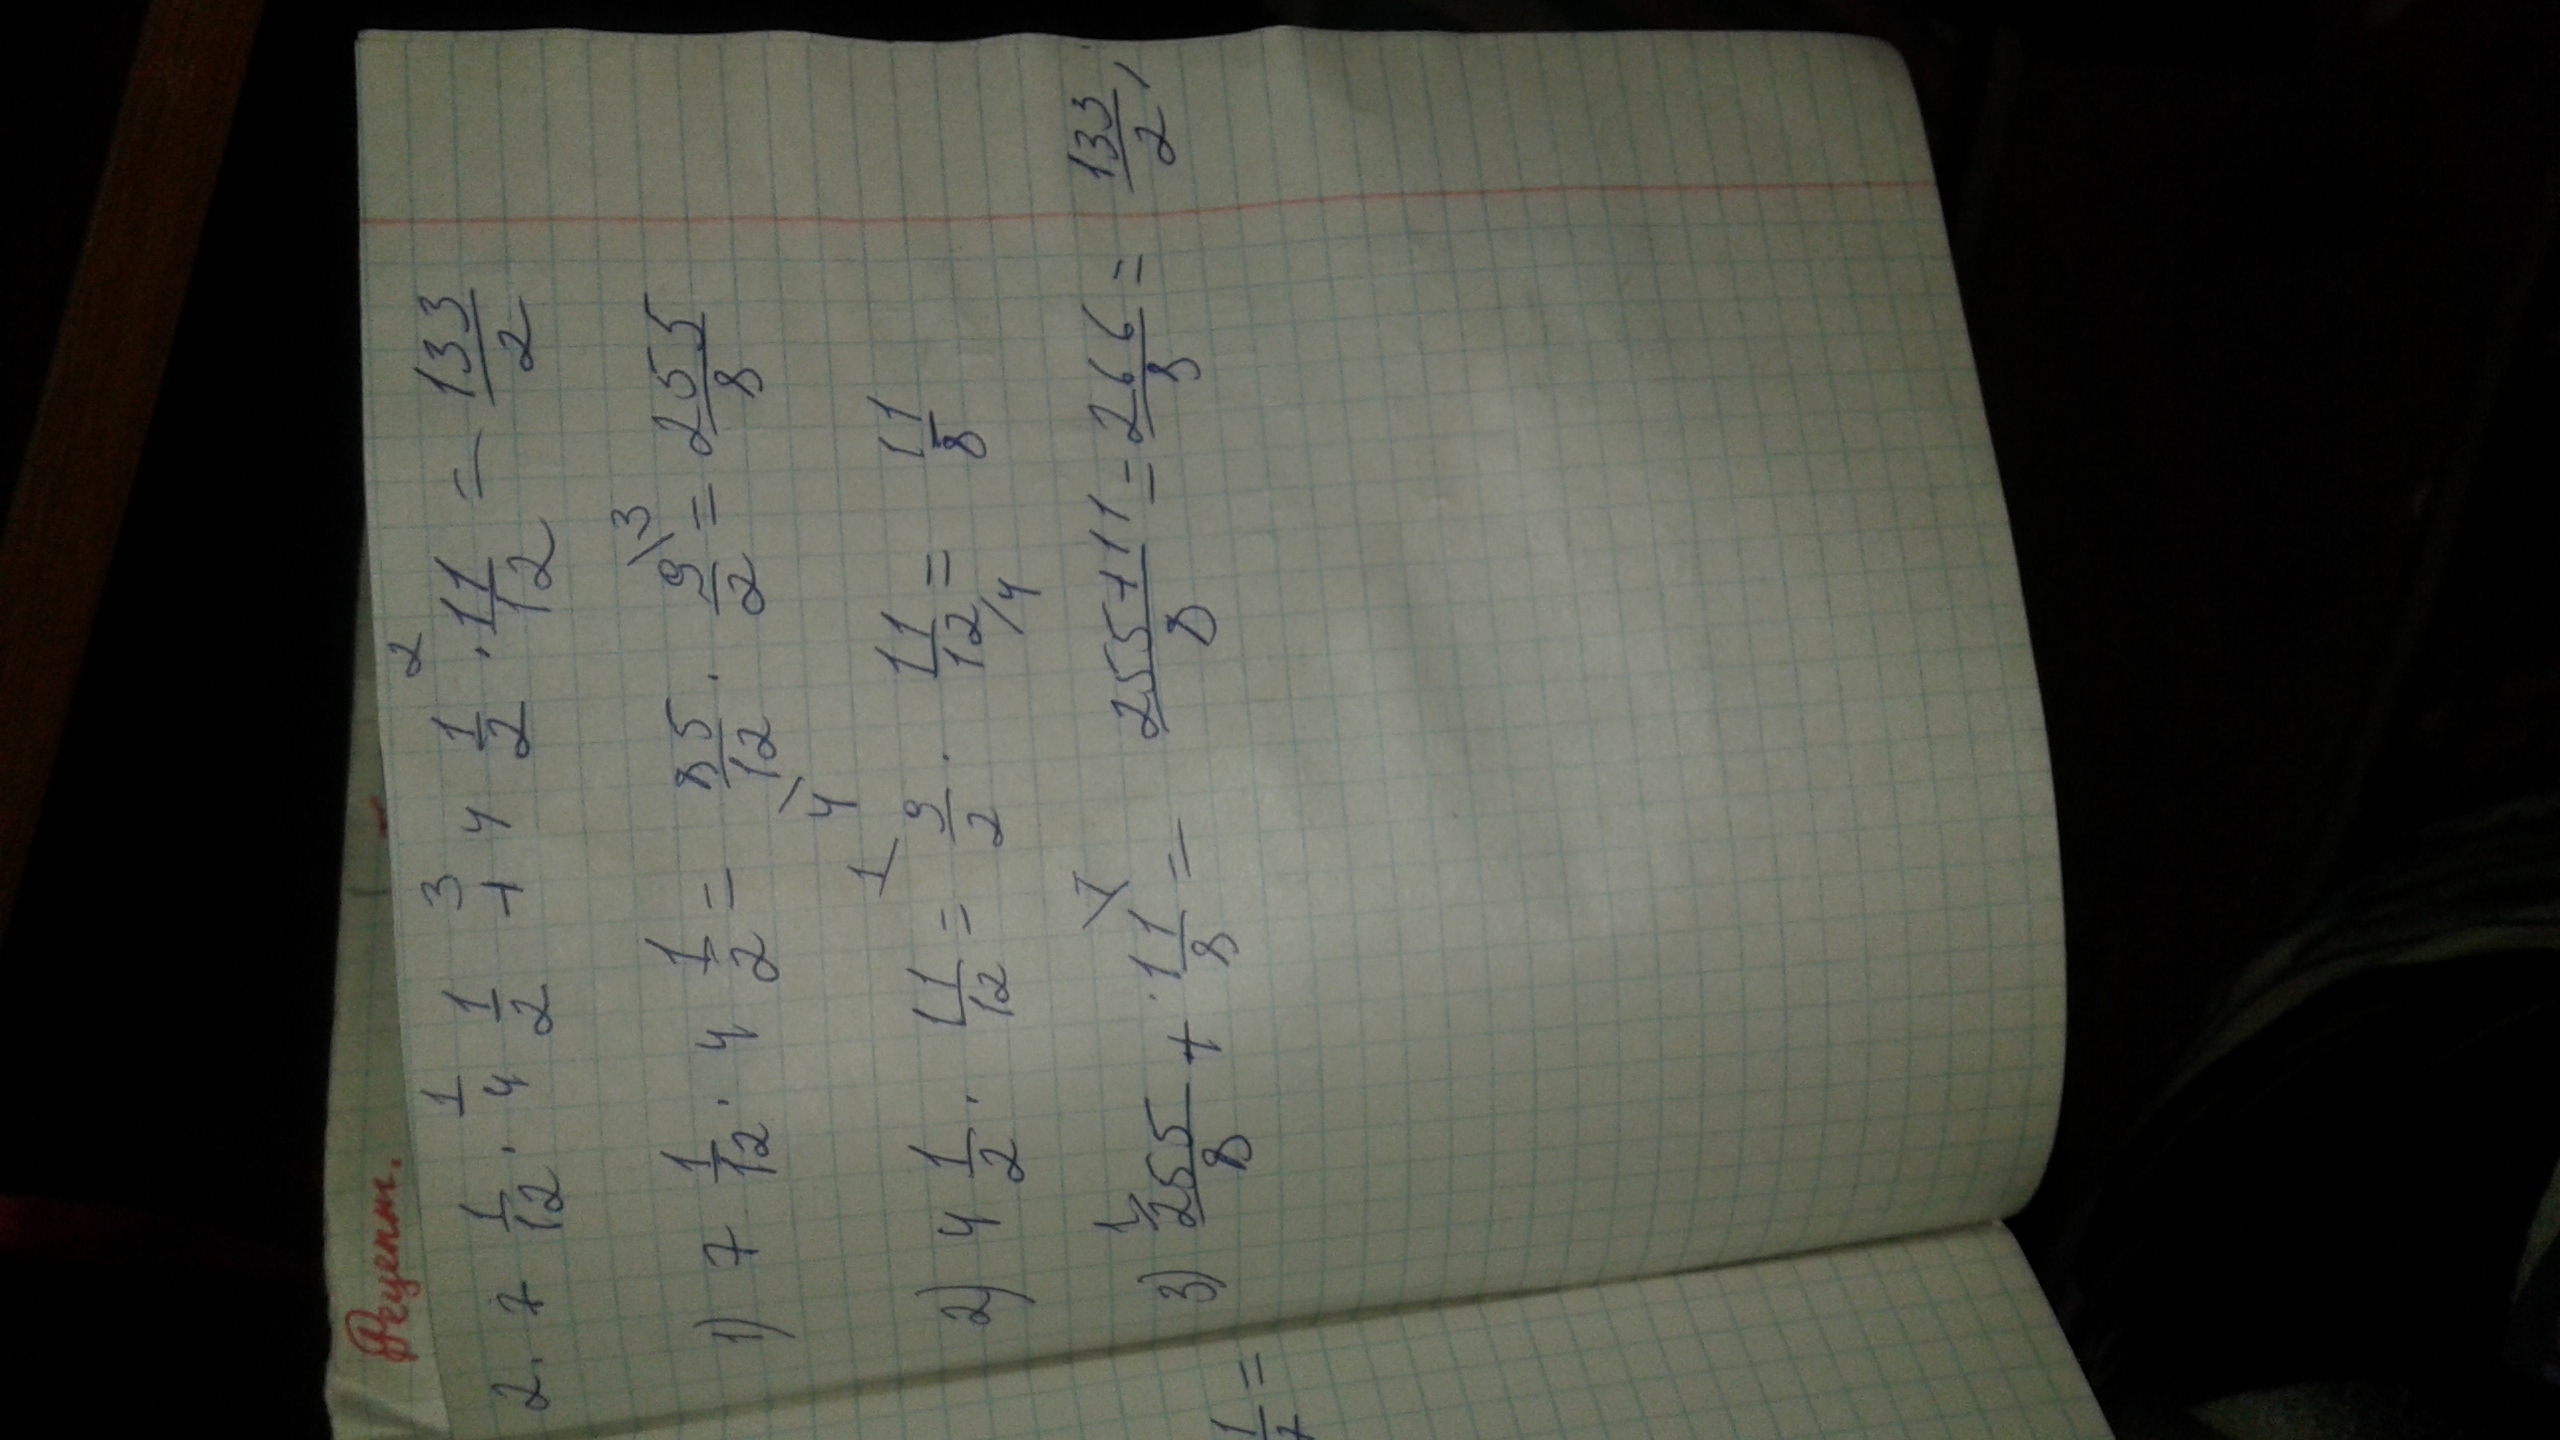 Рецепт.
1 3 2
2. 7 1/12 · 4 1/2 + 4 1/2 · 11/12 = 133/2
1) 7 1/12 · 4 1/2 = 85/12 \4 · 9/2 \3 = 255/8
2) 4 1/2 · 11/12 = 9/2 \1 · 11/12 /4 = 11/8
3) 255/8 \1 + 11/8 \1 = 255+11/8 = 266/8 = 133/2,
1/7 =